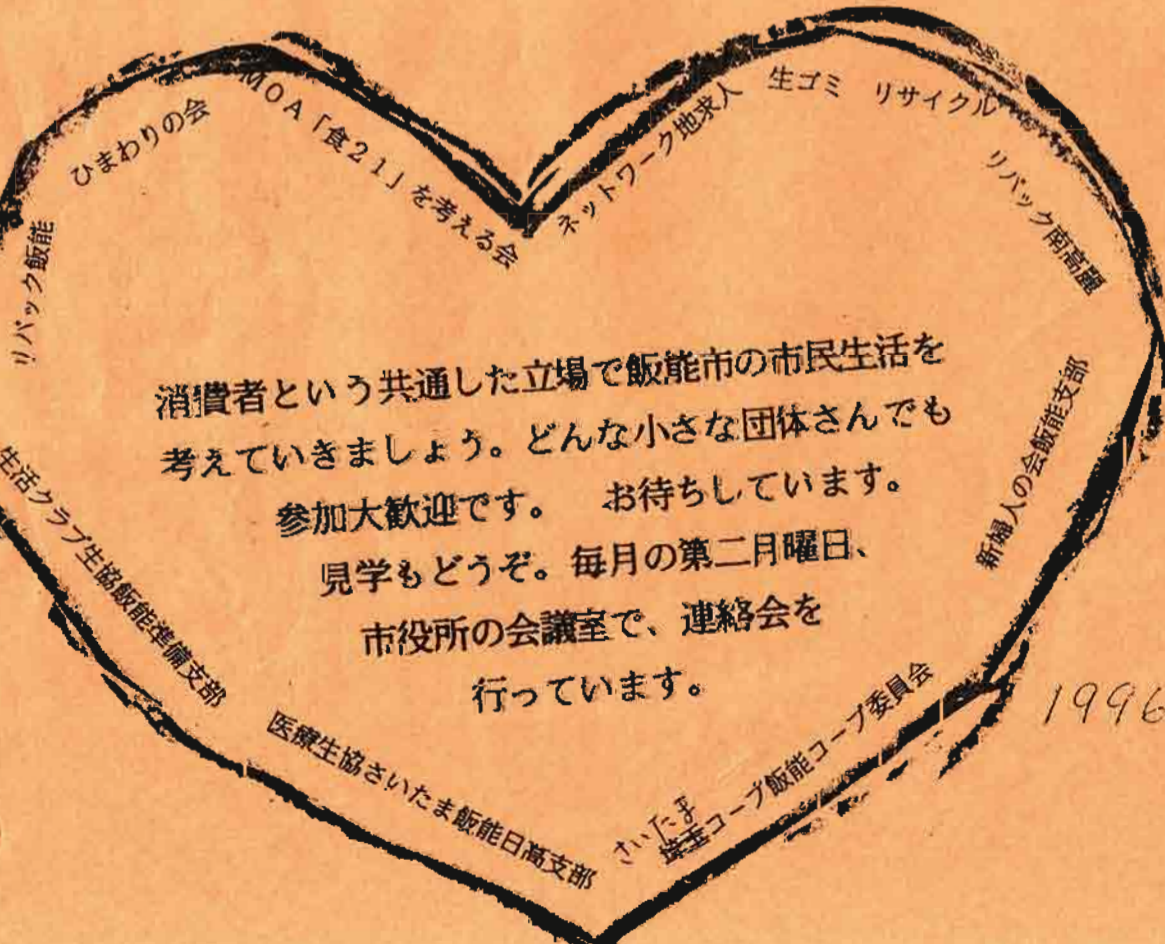 リパック飯能
ひまわりの会
MOA「食21」を考える会
ネットワーク地求人
生ゴミ リサイクル
リパック南高麗
新婦人の会飯能支部
さいたま
埼玉コープ飯能コープ委員会
医療生協さいたま飯能日高支部
生活クラブ生協飯能準備支部
消費者という共通した立場で飯能市の市民生活を
考えていきましょう。どんな小さな団体さんでも
参加大歓迎です。 お待ちしています。
見学もどうぞ。毎月の第二月曜日、
市役所の会議室で、連絡会を
行っています。
1996